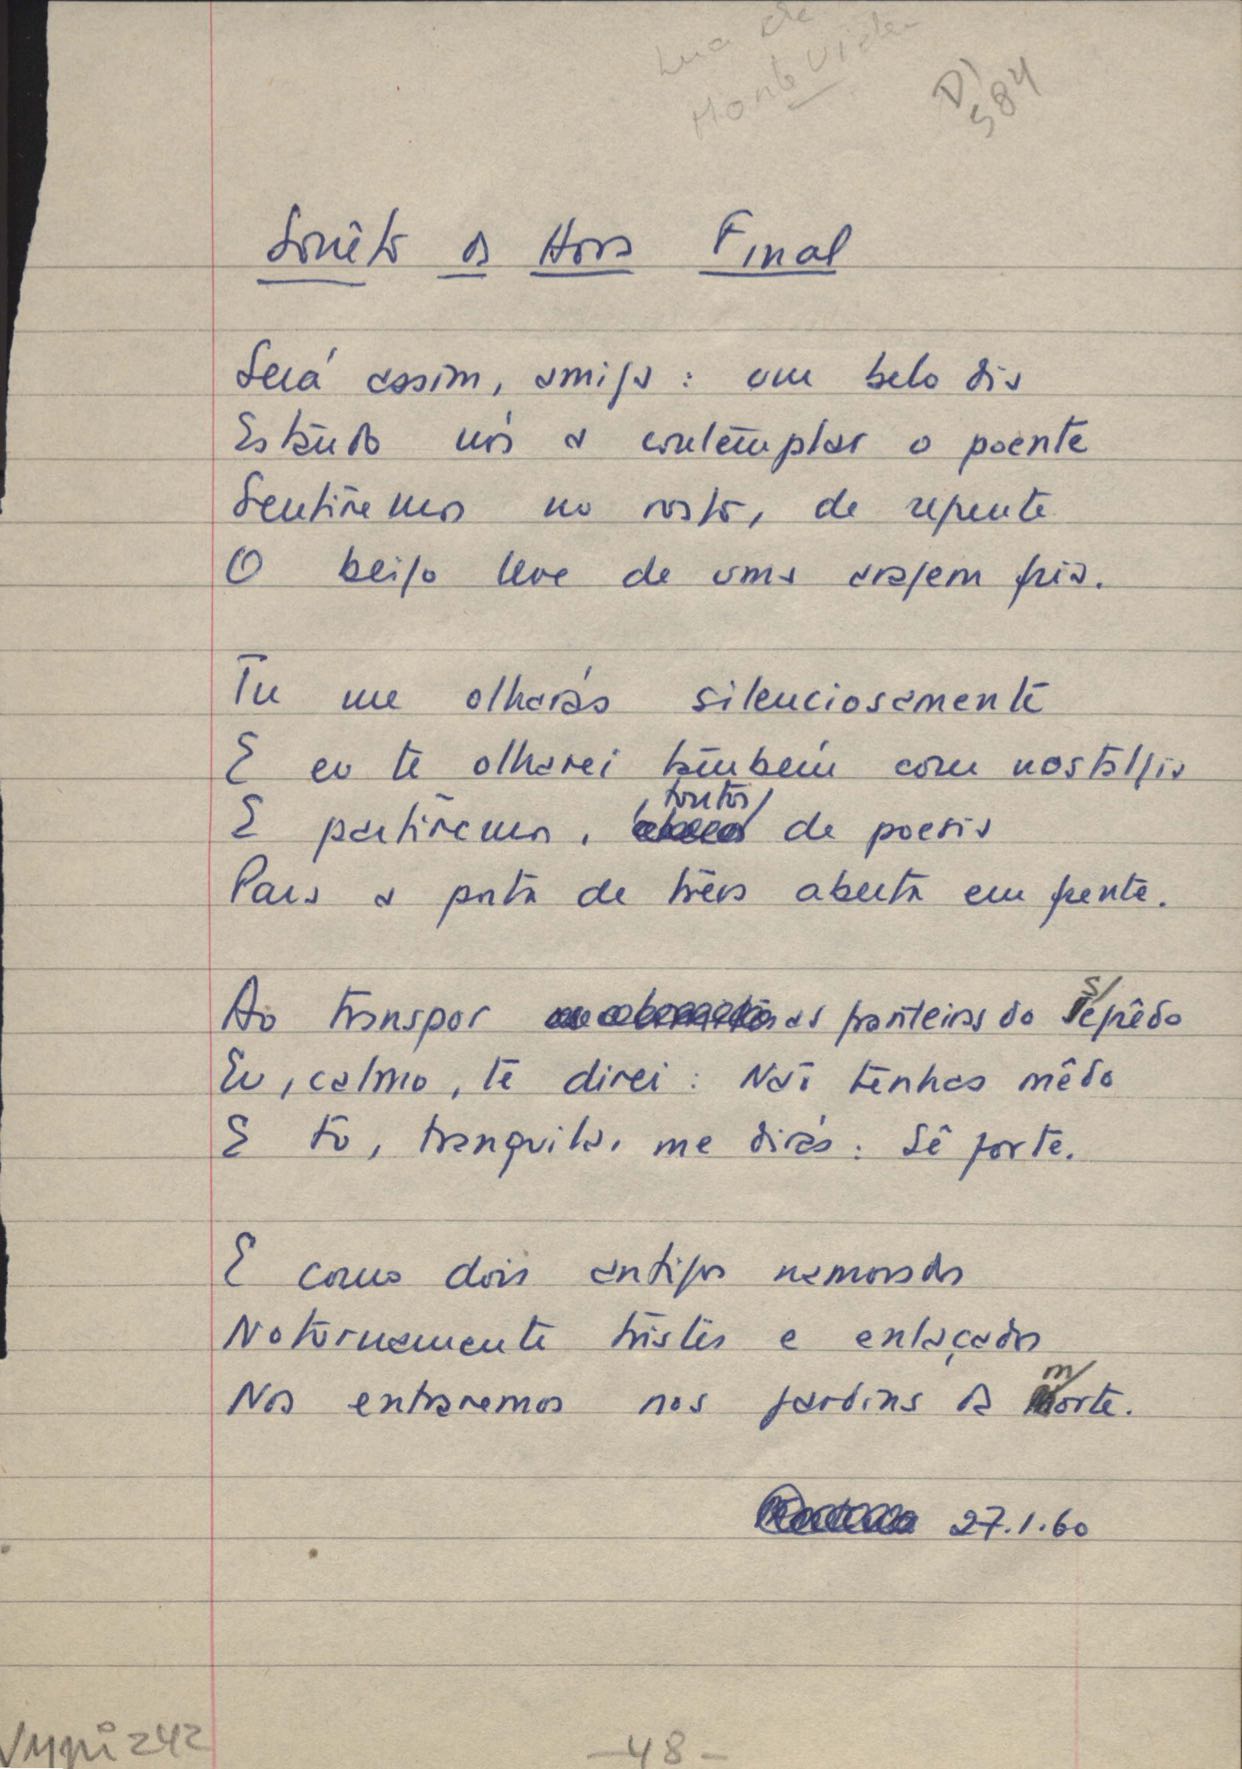 Lua de
Montevideu
DI
584
Sonêto da Hora Final
Será assim, amiga: um belo dia
Estando nós a contemplar o poente
Sentiremos no rosto, de repente
O beijo leve de uma aragem fria.
Tu me olharás silenciosamente
E eu te olharei também com nostalgia
E partiremos, tontos de poesia
Para a porta de treva aberta em frente.
Ao transpor as fronteiras do segrêdo
Eu, calmo, te direi: Não tenhas mêdo
E tu, tranquila, me dirás: Sê forte.
E como dois antigos namorados
Noturnamente tristes e enlaçados
Nós entraremos nos jardins da morte.
27.1.60
VMpi 242
-48-